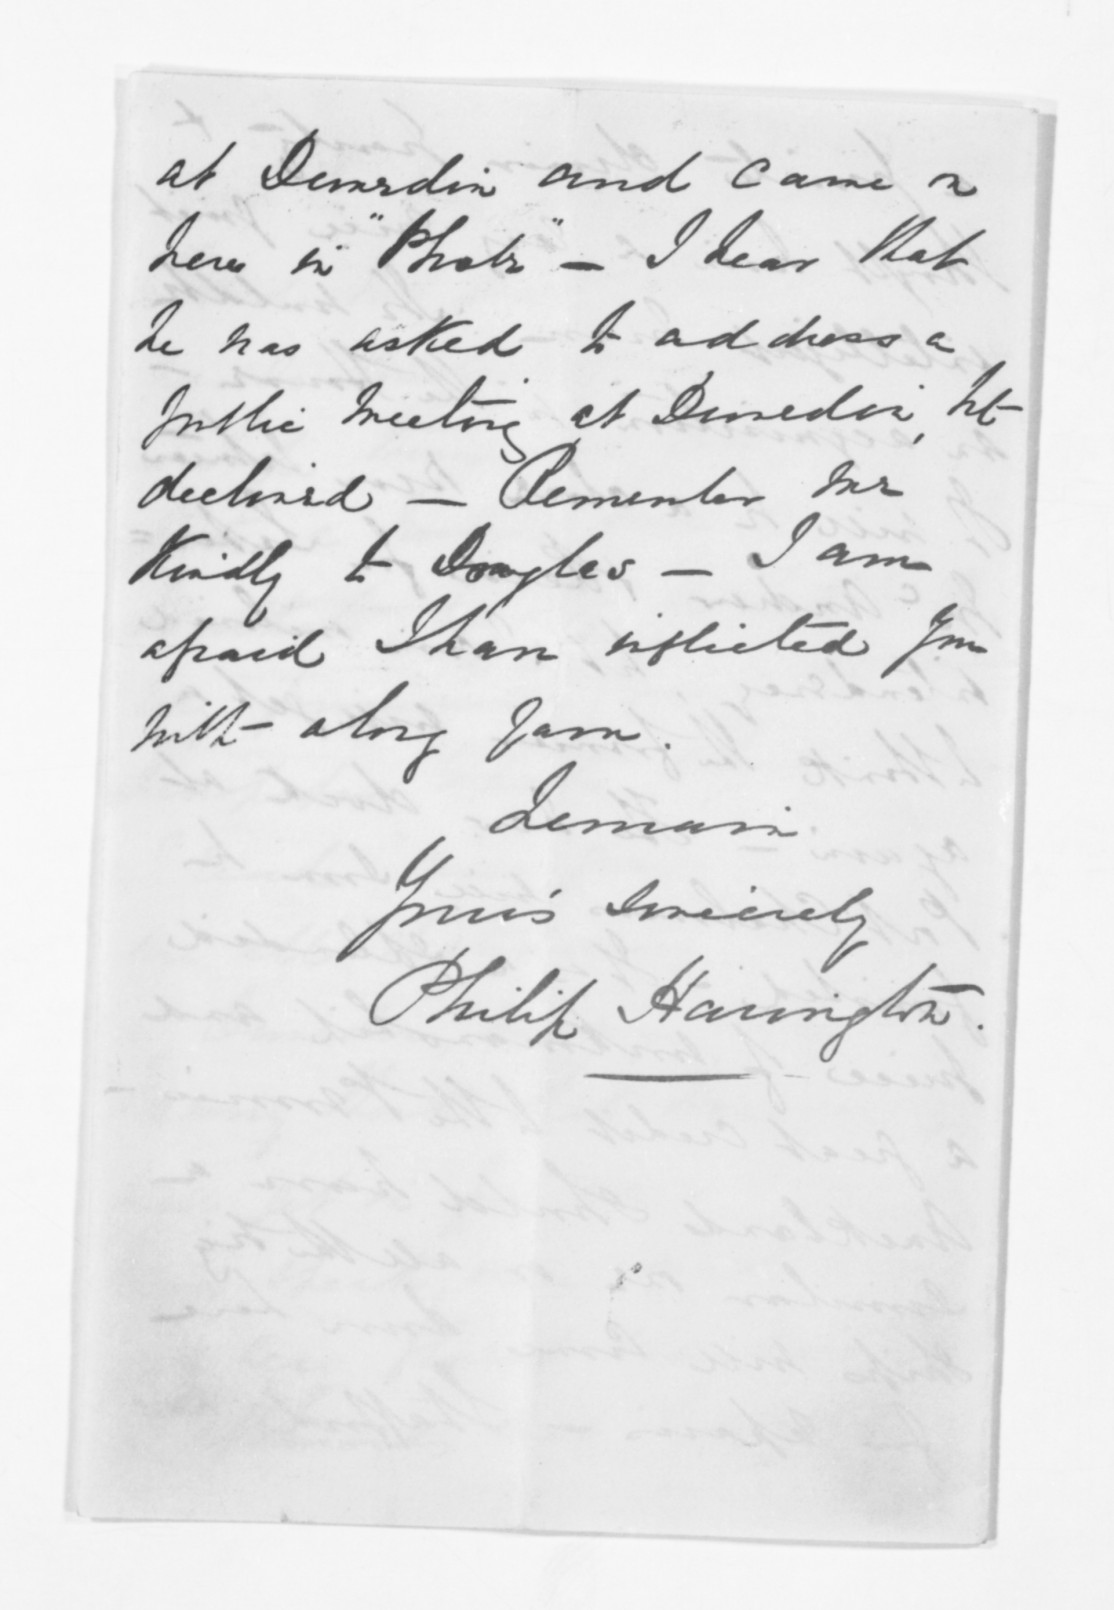 at Dunedin and came on
here in "Phoebe" – I hear that
he was asked to address a
public meeting at Dunedin, but
declined – Remember me
kindly to Douglas – I am
afraid I have inflicted you
with along yarn.
I remain
Yours sincerely
Philip Harington.